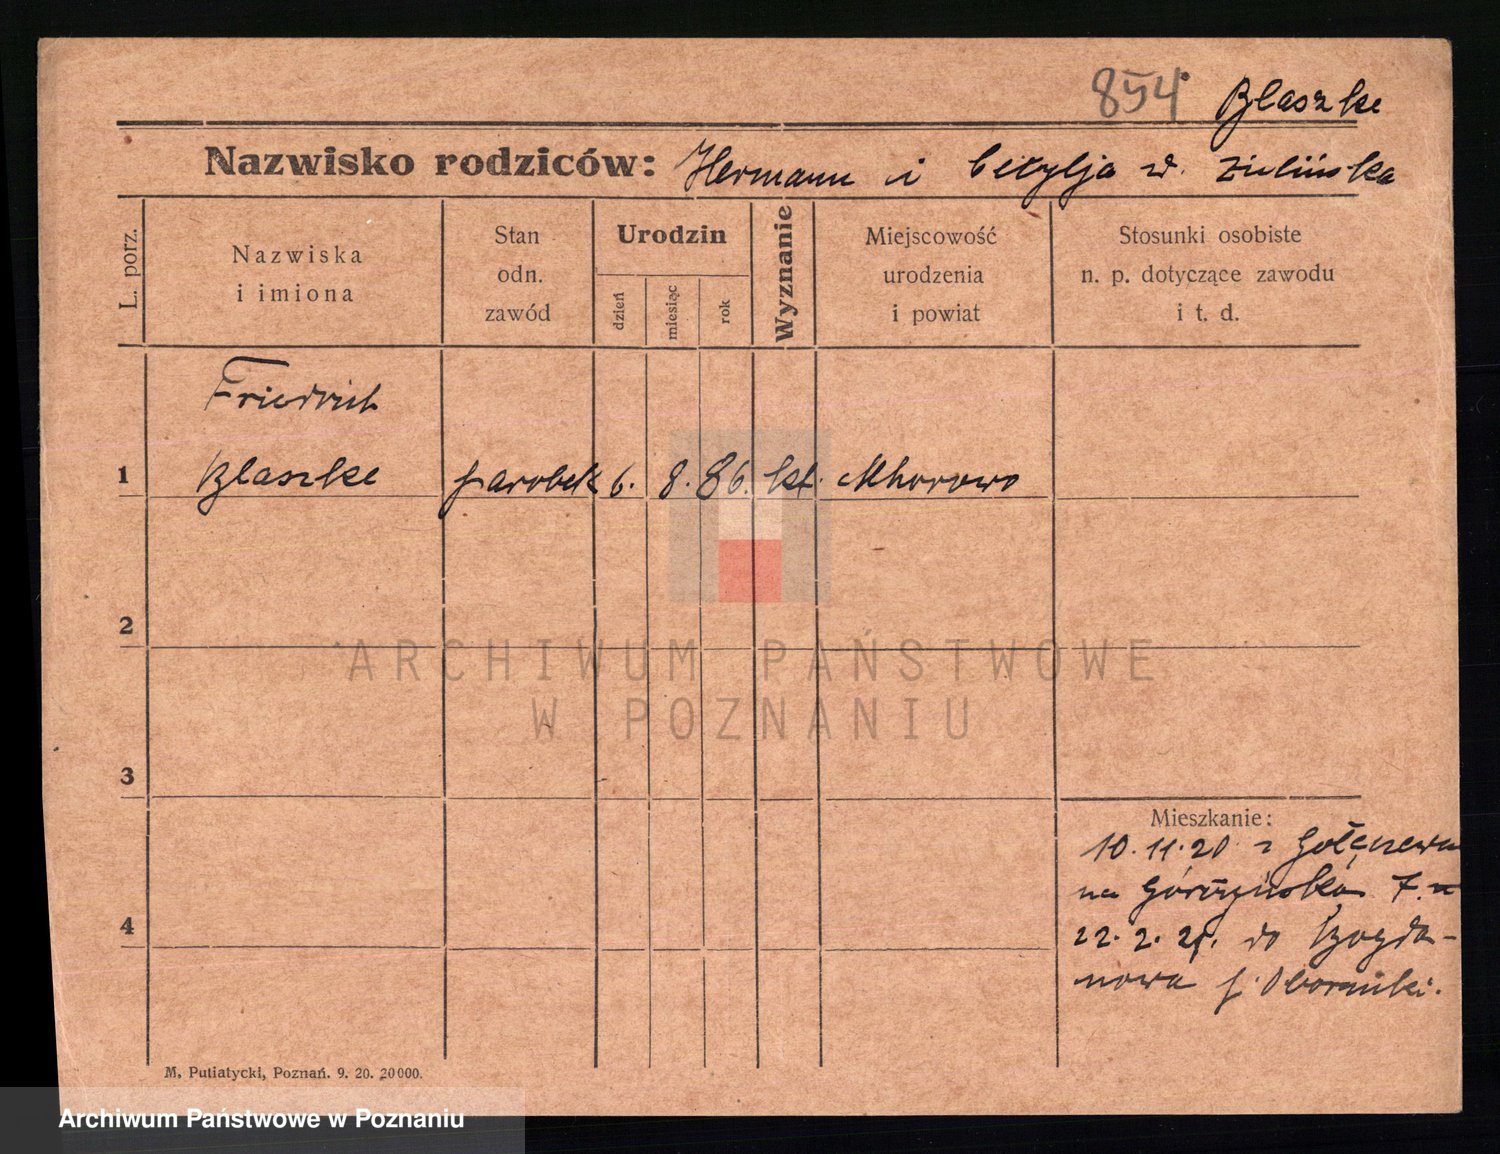 854 Blaszke
Nazwisko rodziców: Hermann i Cecylja z d. Zielińska
L. porz.
Nazwiska
i imiona
Stan
odn.
zawód
Urodzin
dzień
miesiąc
rok
Wyznanie
Miejscowość
urodzenia
i powiat
Stosunki osobiste
n. p. dotyczące zawodu
i t. d.
Friedrich
1 Blaszke parobek 6. 8. 86. kt. Mhorowo
2
3
4
Mieszkanie:
10.11.20 z Gołęczewa
na Górczyńska 7.
22.2.21. do Bogda-
nowa p. Oborniki.
M, Putiatycki, Poznań. 9. 20. 20000.
ARCHIWUM PAŃSTWOWE
W POZNANIU
Archiwum Państwowe w Poznaniu